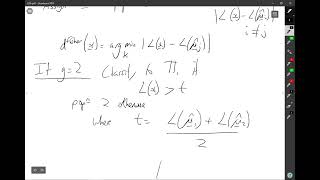 Assign
|L(x) - L(μ̂ⱼ)|
i ≠ j
d^Fisher(x) = argmin_k |L(x) - L(μ̂ⱼ)|
If g=2 Classify to Π₁ if
L(x) > t
popⁿ 2 otherwise
where t = (L(μ̂₁) + L(μ̂₂)) / 2